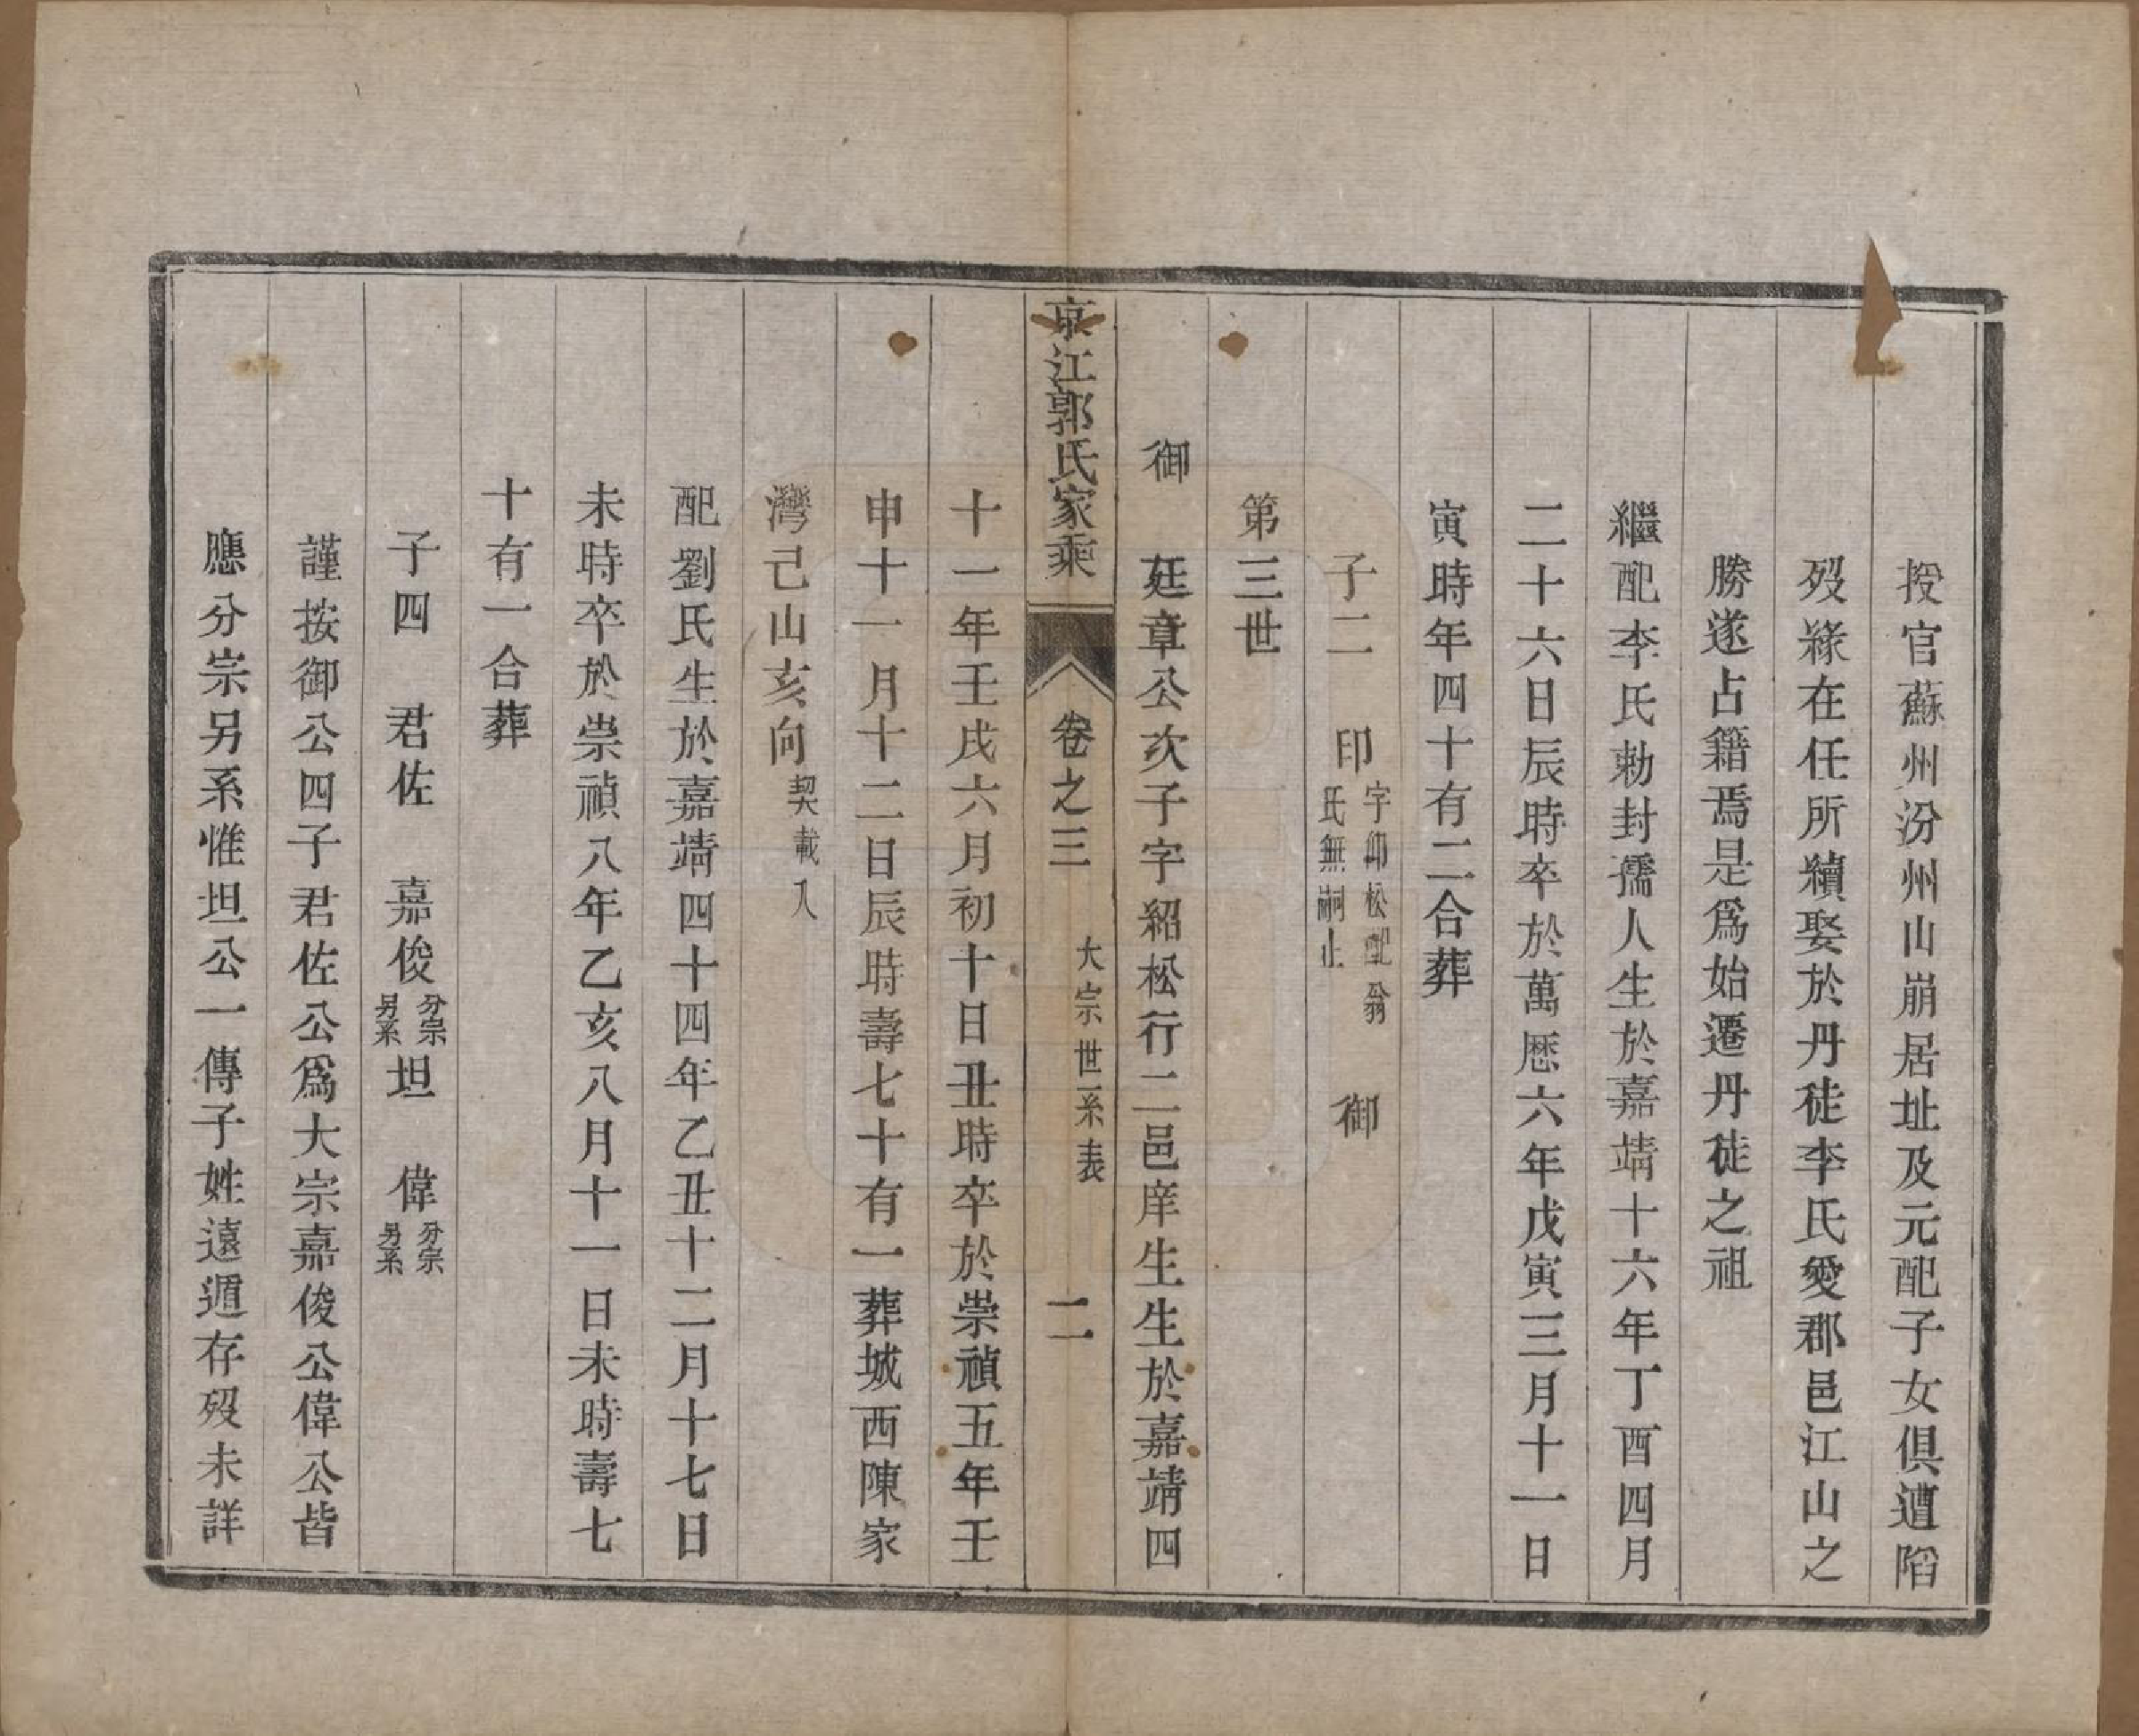 授官蘇州汾州山崩居址及元配子女俱遭陷
歿緣在任所續娶於丹徒李氏愛郡邑江山之
勝遂占籍焉是爲始遷丹徒之祖
繼配李氏勅封孺人生於嘉靖十六年丁酉四月
二十六日辰時卒於萬曆六年戊寅三月十一日
寅時年四十有二合葬
子二 印 字仰松配翁氏無嗣止 御
第三世
御 廷章公次子字紹松行二邑庠生生於嘉靖四
京江郭氏家乘 卷之三 大宗世系表 二
十一年壬戌六月初十日丑時卒於崇禎五年壬
申十一月十二日辰時壽七十有一葬城西陳家
灣己山亥向 契載入
配劉氏生於嘉靖四十四年乙丑十二月十七日
未時卒於崇禎八年乙亥八月十一日未時壽七
十有一合葬
子四 君佐 嘉俊 分宗另系 坦 偉 分宗另系
謹按御公四子君佐公爲大宗嘉俊公偉公皆
應分宗另系惟坦公一傳子姓遠遁存歿未詳